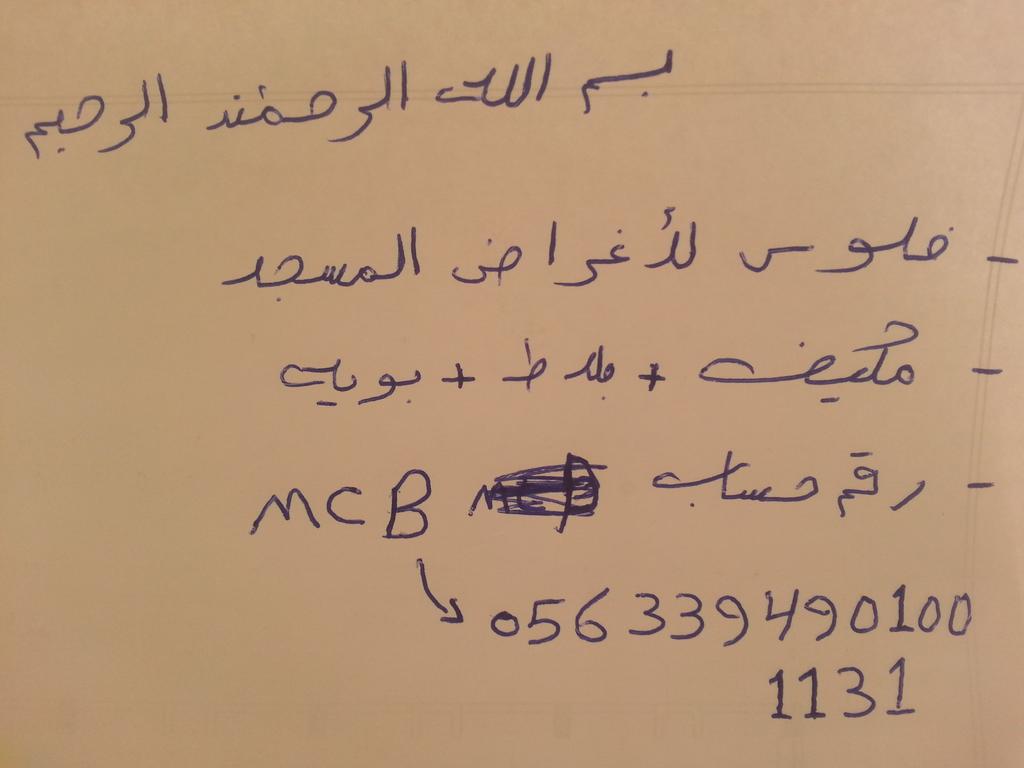 بسم الله الرحمن الرحيم
- فلوس للأغراض المسجد
- مكيف + بلاط + بويه
- رقم حساب MCB
056339490100
1131